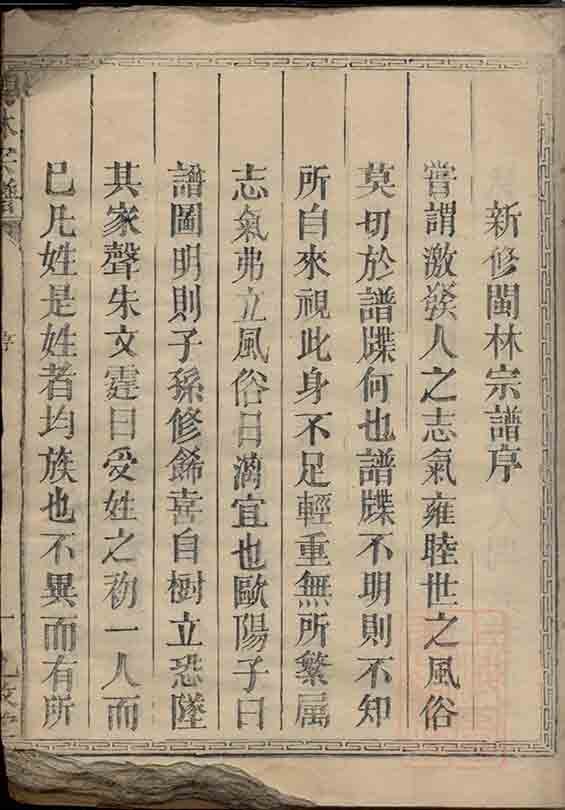 新修閩林宗譜序
嘗謂激發人之志氣雍睦世之風俗
莫切於譜牒何也譜牒不明則不知
所自來視此身不足輕重無所繁属
志氣弗立風俗日漓宜也歐陽子曰
譜圖明則子孫修餙喜自樹立恐墜
其家聲朱文霆曰受姓之初一人而
已凡姓是姓者均族也不異而有所
林宗譜
序
一